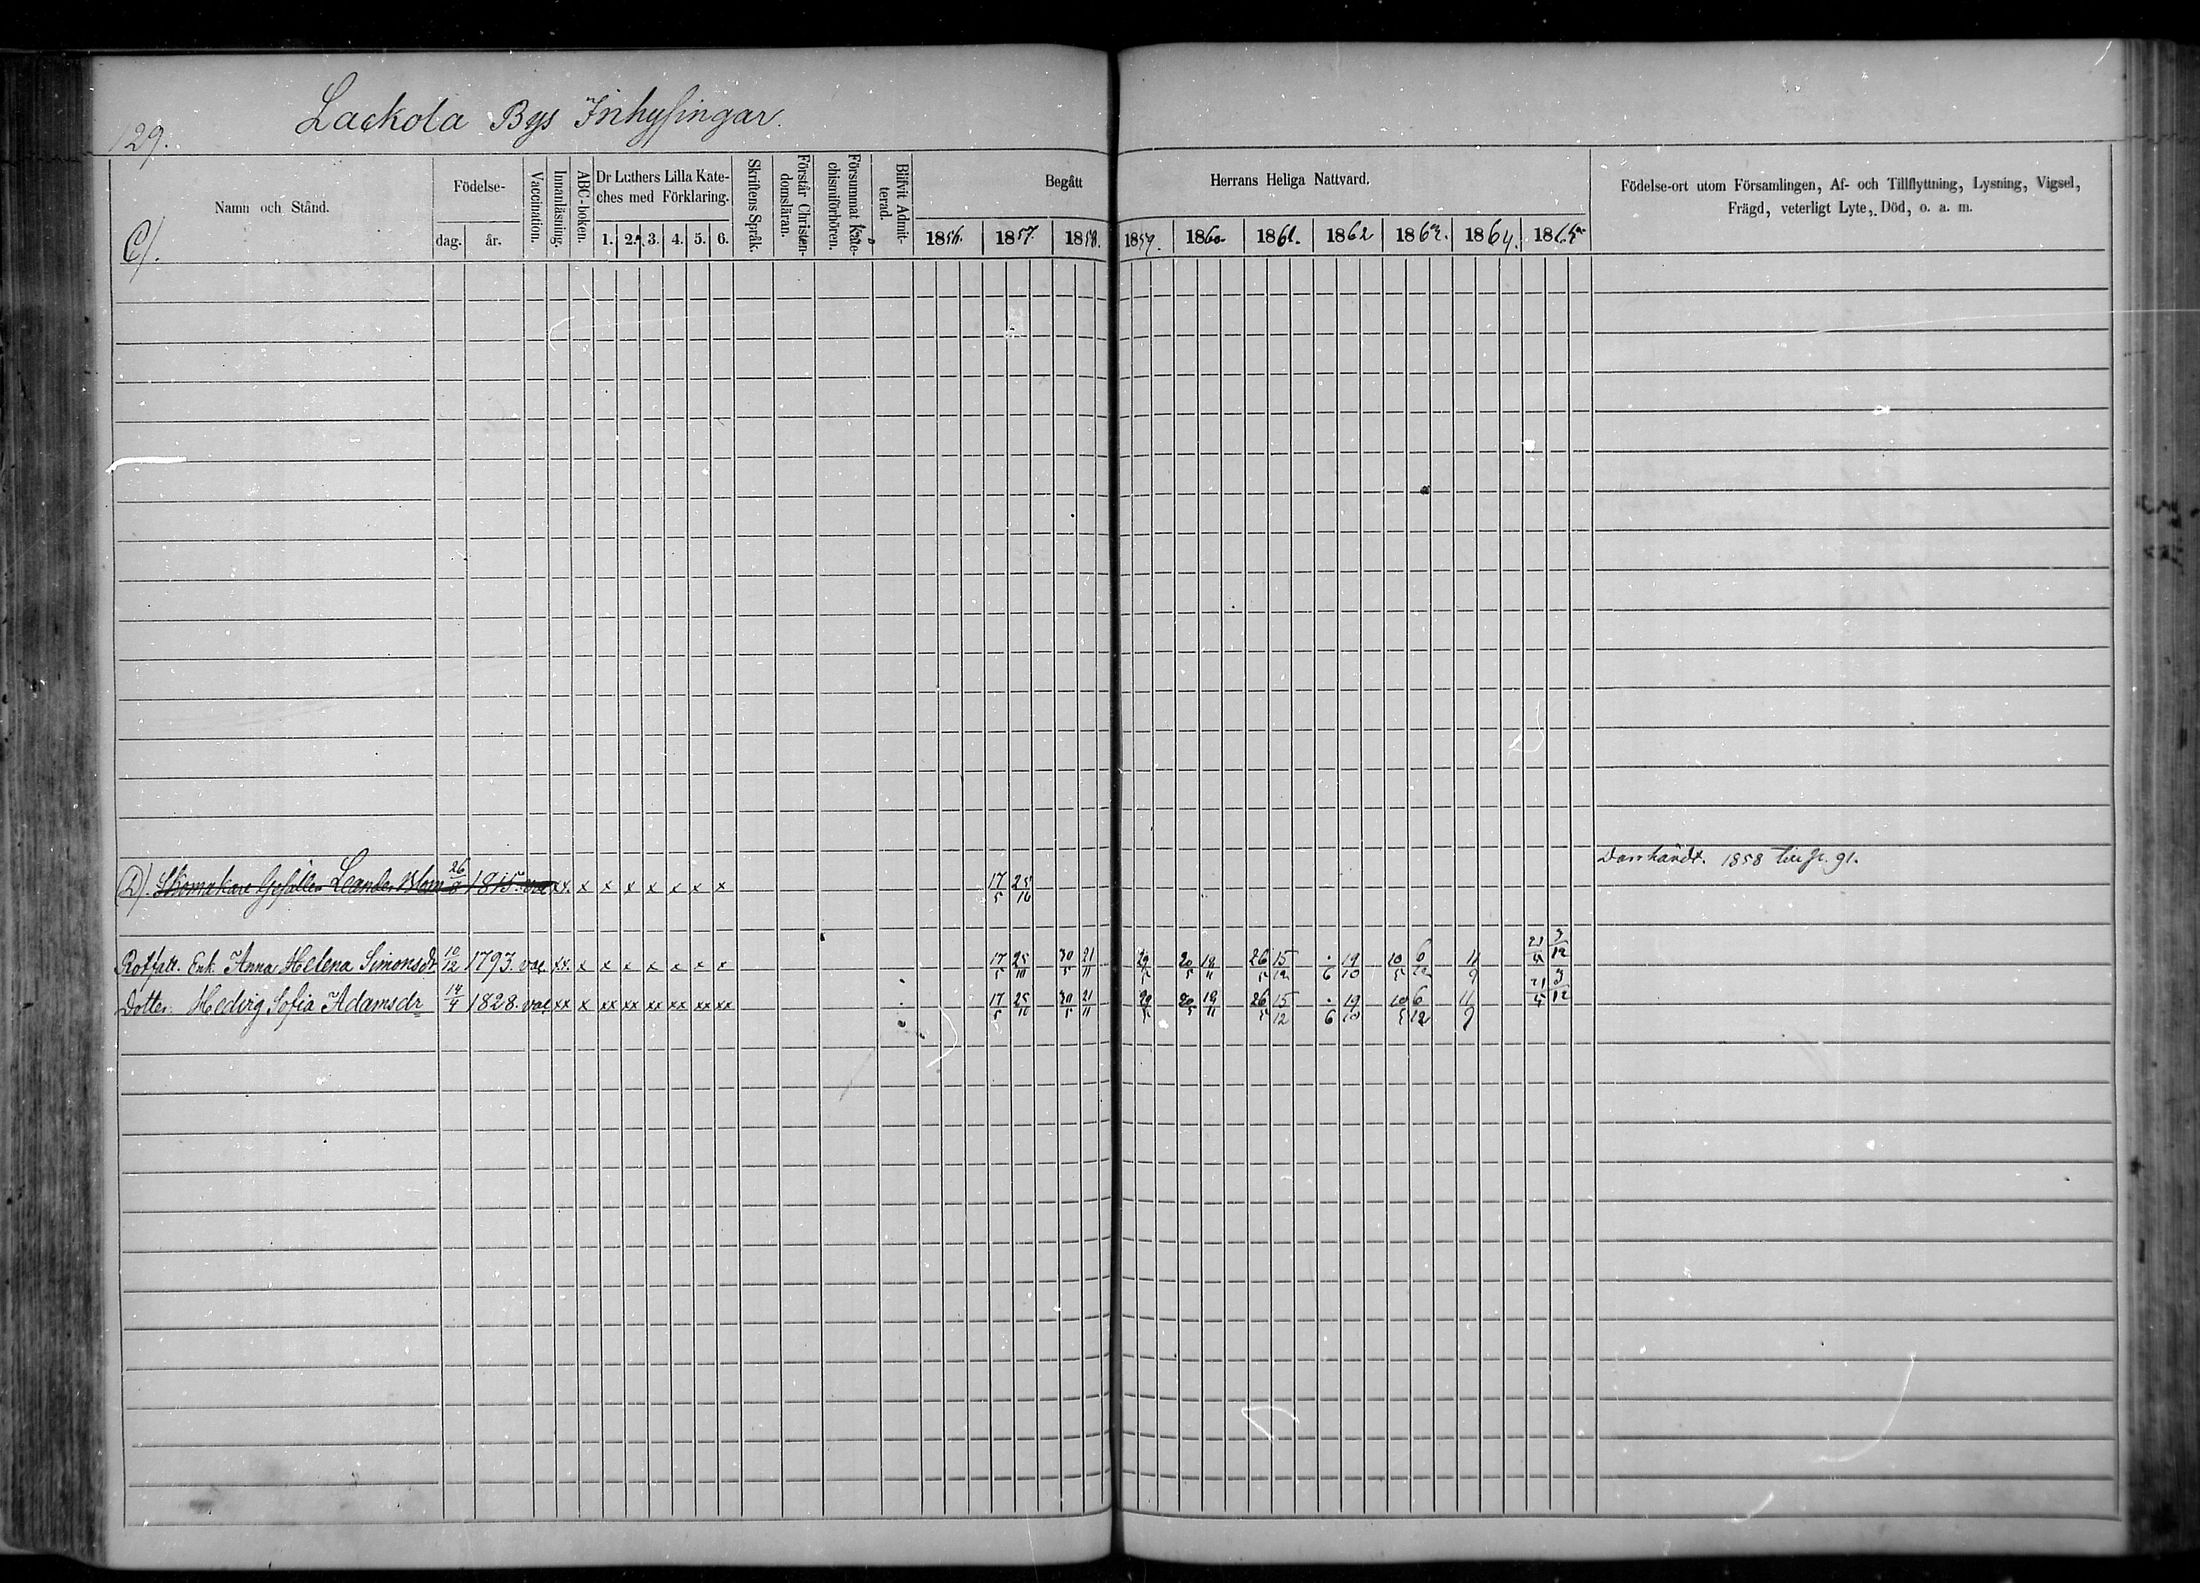 129.
Lackola Bys Inhysingar.
Namn och Stånd.
C/.
Födelse-
dag. år.
Vaccination.
Innanläsning.
ABC-boken.
Dr Luthers Lilla Kate-
ches med Förklaring.
1. 2. 3. 4. 5. 6.
Skriftens Språk.
Förstår Christen-
domsläran.
Försummat Kate-
chismiförhören.
Blifvit Admit-
terad.
Begått Herrans Heliga Nattvard.
1856. 1857. 1858. 1859. 1860. 1861. 1862 1863. 1864. 1865
Födelse-ort utom Församlingen, Af- och Tillflyttning, Lysning, Vigsel,
Frägd, veterligt Lyte, Död, o. a. m.
D/. Skomakare Gesällen Leander Blom 1815. vac xx x x x x x x x 17/5 25/10
1858
91.
Rotfatt. Enk. Anna Helena Simonsdr 10/12 1793. vac xx x x x x x x x 17/5 25/10 30/5 21/11 29/5 20/5 18/11 26/5 15/12 6 19/10 10/5 6/12 11/9 21/5 3/12
Dotter Hedvig Sofia Adamsdr 14/4 1828. vac xx x xx xx xx xx xx xx 17/5 25/10 30/5 21/11 29/5 20/5 18/11 26/5 15/12 6 19/10 10/5 6/12 11/9 21/5 3/12